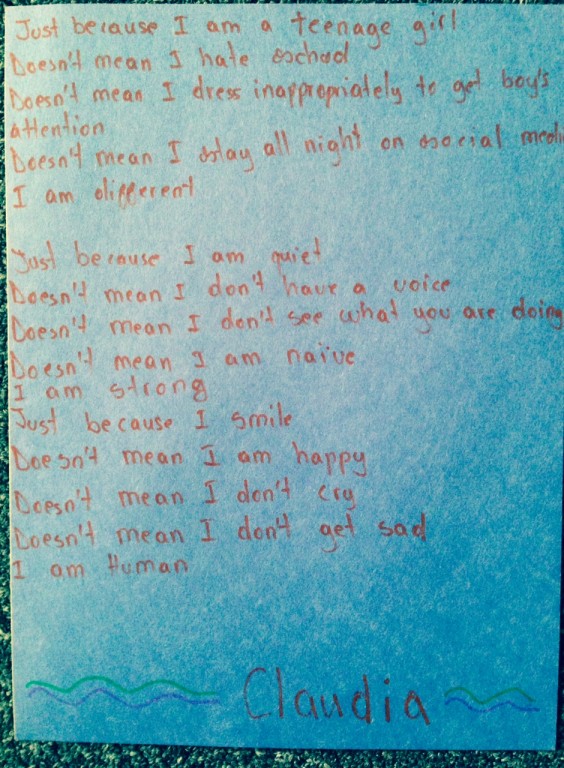 Just because I am a teenage girl
Doesn't mean I hate school
Doesn't mean I dress inappropriately to get boy's
attention
Doesn't mean I stay all night on social medi
I am different
Just because I am quiet
Doesn't mean I don't have a voice
Doesn't mean I don't see what you are doing
Doesn't mean I am naïve
I am strong
Just because I smile
Doesn't mean I am happy
Doesn't mean I don't cry
Doesn't mean I don't get sad
I am Human
Claudia